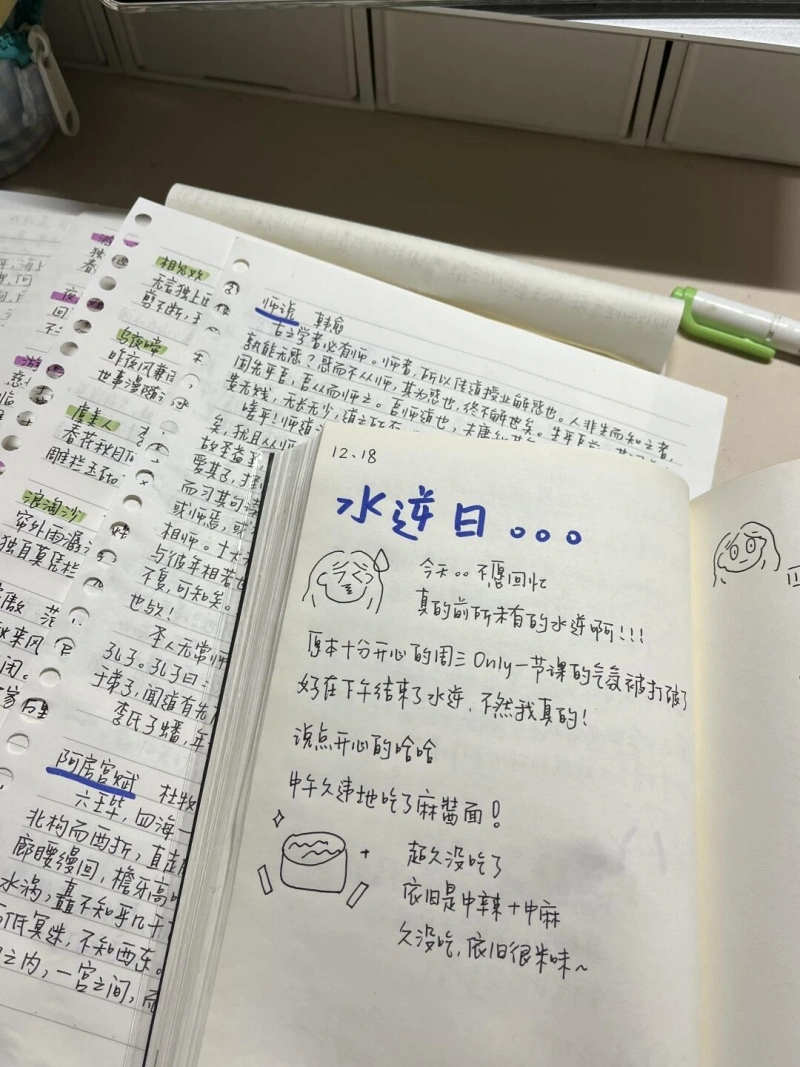 相见欢
无言独上西
剪不断,
乌夜啼
昨夜风兼雨,
世事漫随
虞美人
春花秋月何
雕栏玉砌
浪淘沙
帘外雨潺
独自莫凭栏
秋来风
闭。
师说 韩愈
古之学者必有师。师者,所以传道授业解惑也。人非生而知之者,
孰能无惑?惑而不从师,其为惑也,终不解也矣。生乎吾前,其
固先乎吾,吾从而师之。吾师道也,夫庸知其
贵无贱,无长无少,道之所存
嗟乎!师道
矣,犹且从师
故圣益圣
爱其子,择
而习其句读
或师焉,或
相师。士大夫
与彼年相若也
不复,可知矣。
也欤!
圣人无常师
孔子。孔子曰:
于弟子,闻道有先
李氏子蟠,年
阿房宫赋 杜牧
六王毕,四海一
北构而西折,直走
廊腰缦回,檐牙高
水涡,矗不知乎几千
低冥迷,不知西东。
之内,一宫之间,而
12.18
水逆日。。。
今天。。不愿回忆
真的前所未有的水逆啊!!!
原本十分开心的周三Only一节课的气氛被打破了
好在下午结束了水逆,不然我真的!
说点开心的哈哈
中午久违地吃了麻酱面!
超久没吃了
依旧是中辣+中麻
久没吃,依旧很美味~